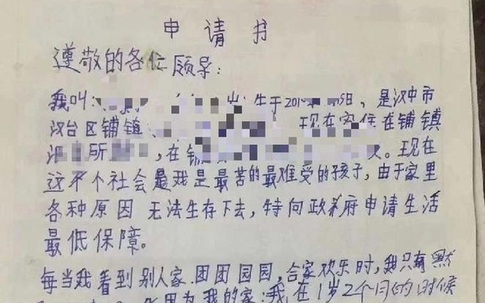 申请书
尊敬的各位领导:
我叫: 出生于201 5日,是汉中市
汉台区铺镇 现在家住在铺镇
所 ,在铺 。现在
这个社会是我是最苦的最难受的孩子,由于家里
各种原因 无法生存下去,特向政府申请生活
最低保障。
每当我看到别人家团团园园,合家欢乐时,我只有默
因为我的家:我在1岁2个月的时候